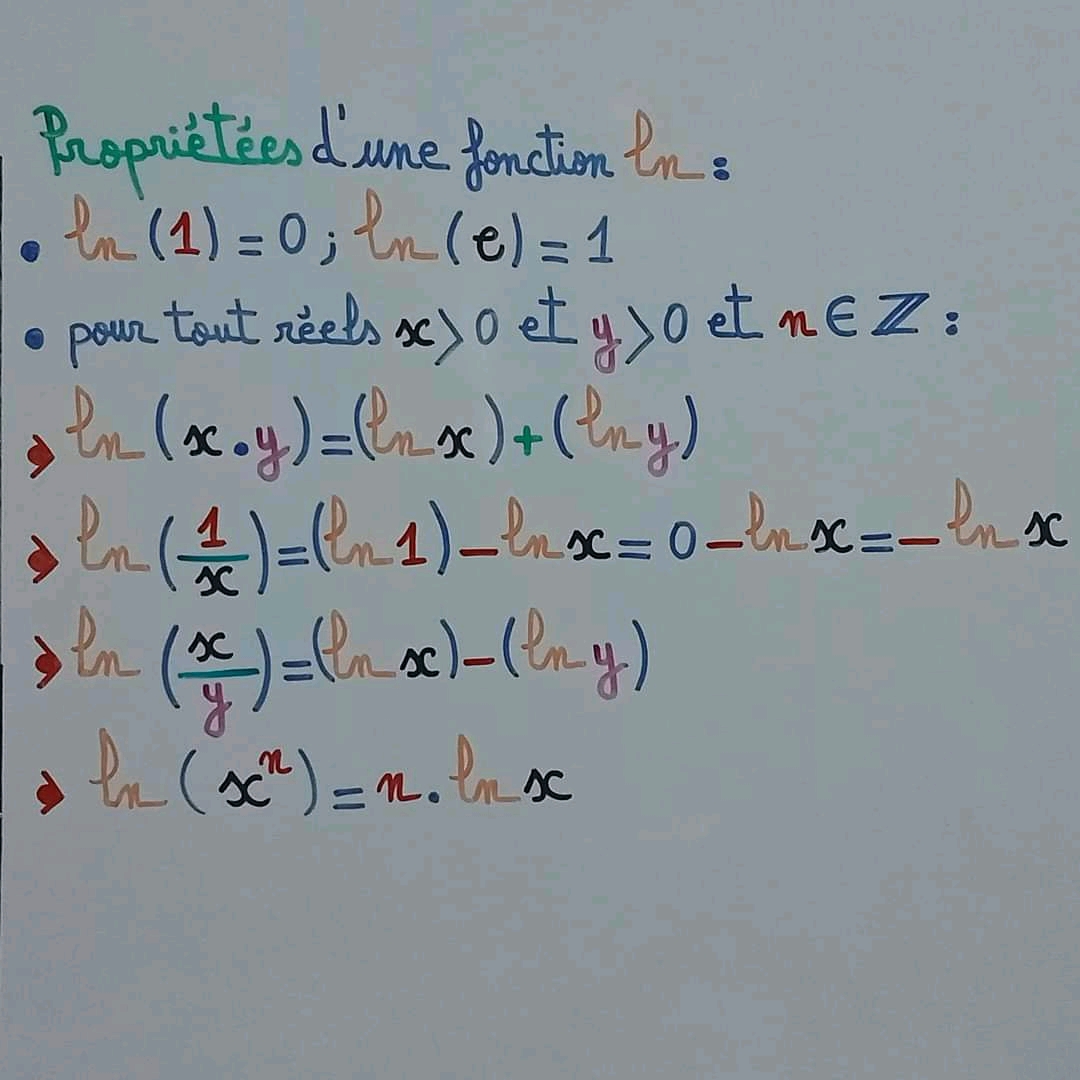 Propriétées d'une fonction ln :
• ln (1) = 0 ; ln (e) = 1
• pour tout réels x > 0 et y > 0 et n ∈ ℤ :
➤ ln (x . y) = (ln x) + (ln y)
➤ ln (1/x) = (ln 1) − ln x = 0 − ln x = − ln x
➤ ln (x/y) = (ln x) − (ln y)
➤ ln (xⁿ) = n . ln x